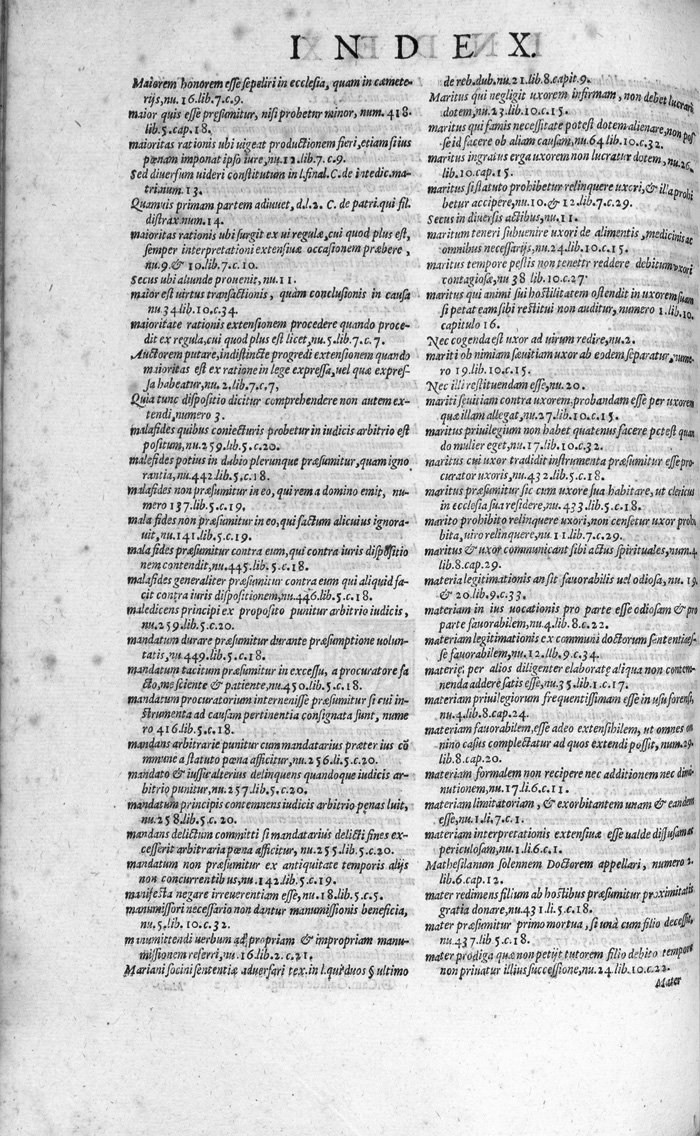 INDEX.
Maiorem honorem esse sepeliri in ecclesia, quam in cæmete-
rijs, nu. 16. lib. 7. c. 9.
maior quis esse præsumitur, nisi probetur minor, num. 418.
lib. 5. cap. 18.
maioritas rationis ubi uigeat productionem fieri, etiam si ius
pœnam imponat ipso iure, nu. 12. lib. 7. c. 9.
Sed diuersum uideri constitutum in l. final. C. de intedic. ma-
tri. num. 13.
Quamuis primam partem adiuuet, d. l. 2. C. de patri. qui fil.
distrax. num. 14.
maioritas rationis ubi surgit ex ui regulæ, cui quod plus est,
semper interpretationi extensiuæ occasionem præbere,
nu. 9. & 10. lib. 7. c. 10.
Secus ubi aliunde prouenit, nu. 11.
maior est uirtus transactionis, quàm conclusionis in causa
nu. 34. lib. 10. c. 34.
maioritate rationis extensionem procedere quando proce-
dit ex regula, cui quod plus est licet, nu. 5. lib. 7. c. 7.
Auctorem putare, indistincte progredi extensionem quando
maioritas est ex ratione in lege expressa, uel quæ expres-
sa habeatur, nu. 2. lib. 7. c. 7,
Quia tunc dispositio dicitur comprehendere non autem ex-
tendi, numero 3.
malafides quibus coniecturis probetur in iudicis arbitrio est
positum, nu. 259. lib. 5. c. 20.
malefides potius in dubio plerunque præsumitur, quam igno
rantia, nu. 442. lib. 5. c. 18.
malafides non præsumitur in eo, qui rem a domino emit, nu-
mero 137. lib. 5. c. 19.
mala fides non præsumitur in eo, qui factum alicuius ignora-
uit, nu. 141. lib. 5. c. 19.
mala fides præsumitur contra eum, qui contra iuris dispositio
nem contendit, nu. 445. lib. 5. c. 18.
malafides generaliter præsumitur contra eum qui aliquid fa-
cit contra iuris dispositionem, nu. 446. lib. 5. c. 18.
maledicens principi ex proposito punitur arbitrio iudicis,
nu. 259. lib. 5. c. 20.
mandatum durare præsumitur durante præsumptione uolun-
tatis, nu. 449. lib. 5. c. 18.
mandatum tacitum præsumitur in excessu, a procuratore fa
cto, me sciente & patiente, nu. 450. lib. 5. c. 18.
mandatum procuratorium interuenisse præsumitur si cui in-
strumenta ad causam pertinentia consignata sunt, nume
ro 416. lib. 5. c. 18.
mandans arbitrarie punitur cum mandatarius præter ius cõ
mune a statuto pœna afficitur, nu. 256. li. 5. c. 20.
mandato & iussu alterius delinquens quandoque iudicis ar-
bitrio punitur, nu. 257. lib. 5. c. 20.
mandatum principis contemnens iudicis arbitrio penas luit,
nu. 258. lib. 5. c. 20.
mandans delictum committi si mandatarius delicti fines ex-
cesserit arbitraria pœna afficitur, nu. 255. lib. 5. c. 20.
mandatum non præsumitur ex antiquitate temporis alijs
non concurrentibus, nu. 142. lib. 5. c. 19.
manifesta negare irreuerentiam esse, nu. 18. lib. 5. c. 5.
manumissori necessario non dantur manumissionis beneficia,
nu. 5. lib. 10. c. 32.
manumittendi uerbum ad propriam & impropriam manu-
missionem referri, nu. 16. lib. 2. c. 21.
Mariani socini sententiæ aduersari tex. in l. qui duos § ultimo
de reb. dub. nu. 21. lib. 8. capit. 9.
Maritus qui negligit uxorem infirmam, non debet lucrari
dotem, nu. 23. lib. 10. c. 15.
maritus qui famis necessitate potest dotem alienare, non pos
se id facere ob aliam causam, nu. 64. lib. 10. c. 32.
maritus ingratus erga uxorem non lucratur dotem, nu. 26.
lib. 10. cap. 15.
maritus si statuto prohibetur relinquere uxori, & illa prohi
betur accipere, nu. 10. & 12. lib. 7. c. 29.
Secus in diuersis actibus, nu. 11.
maritum teneri subuenire uxori de alimentis, medicinis ac
omnibus necessarijs, nu. 24. lib. 10. c. 15.
maritus tempore pestis non tenetur reddere debitum uxori
contagiosæ, nu 38 lib. 10. c. 27
maritus qui animi sui hostilitatem ostendit in uxorem suam
si petat eam sibi restitui non auditur, numero 1. lib. 10.
capitulo 16.
Nec cogenda est uxor ad uirum redire, nu. 2.
mariti ob nimiam sæuitiam uxor ab eodem separatur, nume-
ro 19. lib. 10. c. 15.
Nec illi restituendam esse, nu. 20.
mariti seuitiam contra uxorem probandam esse per uxorem
quæ illam allegat, nu. 27. lib. 10. c. 15.
maritus priuilegium non habet quatenus facere potest quan
do mulier eget, nu. 17. lib. 10. c. 32.
maritus cui uxor tradidit instrumenta præsumitur esse pro-
curator uxoris, nu. 432. lib. 5. c. 18.
maritus præsumitur sic cum uxore sua habitare, ut clericus
in ecclesia sua residere, nu. 433. lib. 5. c. 18.
marito prohibito relinquere uxori, non censetur uxor prohi
bita, uiro relinquere, nu. 11. lib. 7. c. 29.
maritus & uxor communicant sibi actus spirituales, num. 4.
lib. 8. cap. 29.
materia legitimationis an sit fauorabilis uel odiosa, nu. 19.
& 20. lib. 9. c. 33.
materiam in ius uocationis pro parte esse odiosam & pro
parte fauorabilem, nu. 4. lib. 8. c. 22.
materiam legitimationis ex communi doctorum sententia es-
se fauorabilem, nu. 12. lib. 9. c. 34.
materię per alios diligenter elaboratę aliqua non contem-
nenda addere satis esse, nu. 35. lib. 1. c. 17.
materiam priuilegiorum frequentissimam esse in usu forensi,
nu. 4. lib. 8. cap. 24.
materiam fauorabilem, esse adeo extensibilem, ut omnes om
nino casus complectatur ad quos extendi possit, num. 29.
lib. 8. cap. 20.
materiam formalem non recipere nec additionem nec dimi
nutionem, nu. 17. li. 6. c. 11.
materiam limitatoriam, & exorbitantem unam & eandem
esse, nu. 1. li. 7. c. 1.
materiam interpretationis extensiuæ esse ualde diffusam ac
periculosam, nu. 1. li. 6. c. 1.
Mathesilanum solennem Doctorem appellari, numero 2.
lib. 6. cap. 12.
mater redimens filium ab hostibus præsumitur proximitatis
gratia donare, nu. 431. li. 5. c. 18.
mater præsumitur primo mortua, si unà cum filio decessit,
nu. 437. lib 5. c. 18.
mater prodiga quæ non petijt tutorem filio debito tempore
non priuatur illius successione, nu. 24. lib. 10. c. 22.
Mater